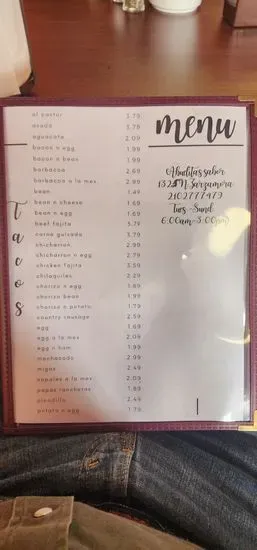 menu
Tacos
al pastor 3.79
asada 3.79
aguacate 2.09
bacon n egg 1.99
bacon n bean 1.99
barbacoa 2.69
barbacoa a la mex 2.89
bean 1.49
bean n cheese 1.69
bean n egg 1.69
beef fajita 3.79
carne guisada 3.79
chicharron 2.99
chicharron n egg 2.79
chicken fajita 3.59
chilaquiles 2.29
chorizo n egg 1.89
chorizo bean 1.99
chorizo n potato 1.79
country sausage 2.59
egg 1.69
egg a la mex 2.09
egg n ham 1.99
machacado 2.99
migas 2.49
nopales a la mex 2.09
papas rancheras 1.89
picadillo 2.49
potato n egg 1.79
Abuelitas sabor
1324 N. Zarzamora
2102777479
Tues-Sund
6:00am-3:00pm